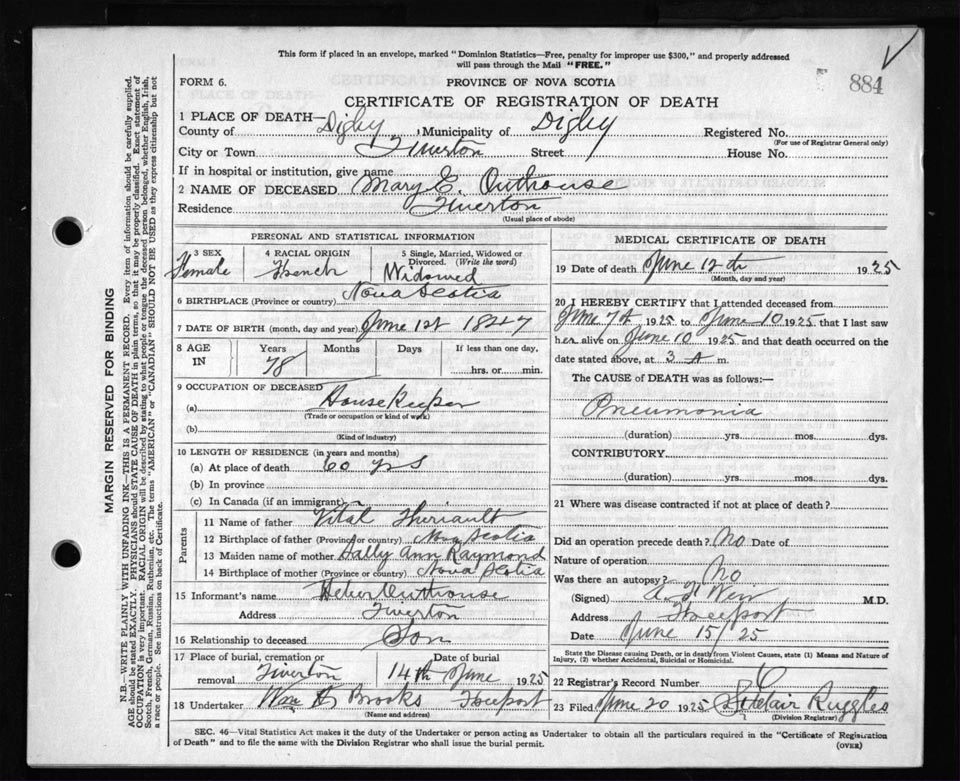 This form if placed in an envelope, marked "Dominion Statistics—Free, penalty for improper use $300," and properly addressed
will pass through the Mail "FREE."
884
FORM 6.
PROVINCE OF NOVA SCOTIA
CERTIFICATE OF REGISTRATION OF DEATH
1 PLACE OF DEATH—
County of Digby Municipality of Digby Registered No.
(For use of Registrar General only)
City or Town Tiverton Street House No.
If in hospital or institution, give name
2 NAME OF DECEASED Mary E. Outhouse
Residence Tiverton
(Usual place of abode)
PERSONAL AND STATISTICAL INFORMATION
3 SEX
Female
4 RACIAL ORIGIN
French
5 Single, Married, Widowed or
Divorced. (Write the word)
Widowed
6 BIRTHPLACE (Province or country) Nova Scotia
7 DATE OF BIRTH (month, day and year) June 1st 1847
8 AGE
IN
Years Months Days If less than one day,
78 hrs. or min.
9 OCCUPATION OF DECEASED
(a) House Keeper
(Trade or occupation or kind of work)
(b)
(Kind of industry)
10 LENGTH OF RESIDENCE (in years and months)
(a) At place of death 60 yrs
(b) In province
(c) In Canada (if an immigrant)
Parents
11 Name of father Vital Theriault
12 Birthplace of father (Province or country) Nova Scotia
13 Maiden name of mother Sally Ann Raymond
14 Birthplace of mother (Province or country) Nova Scotia
15 Informant's name Heber Outhouse
Address Tiverton
16 Relationship to deceased Son
17 Place of burial, cremation or
removal Tiverton
Date of burial
14th June 1925
18 Undertaker Wm Brooks Freeport
(Name and address)
MEDICAL CERTIFICATE OF DEATH
19 Date of death June 12th 1925
(Month, day and year)
20 I HEREBY CERTIFY that I attended deceased from
June 7th 1925 to June 10 1925 that I last saw
her alive on June 10 1925 and that death occurred on the
date stated above, at 3 A m.
The CAUSE of DEATH was as follows:—
Pneumonia
(duration) yrs. mos. dys.
CONTRIBUTORY
(duration) yrs. mos. dys.
21 Where was disease contracted if not at place of death?
Did an operation precede death? No Date of
Nature of operation
Was there an autopsy? No
(Signed) Weir M.D.
Address Freeport
Date June 15/25
State the Disease causing Death, or in death from Violent Causes, state (1) Means and Nature of
Injury, (2) whether Accidental, Suicidal or Homicidal.
22 Registrar's Record Number 6
23 Filed June 20 1925 St Clair Ruggles
(Division Registrar)
SEC. 46—Vital Statistics Act makes it the duty of the Undertaker or person acting as Undertaker to obtain all the particulars required in the "Certificate of Registration
of Death" and to file the same with the Division Registrar who shall issue the burial permit.
(OVER)
MARGIN RESERVED FOR BINDING
N.B.—WRITE PLAINLY WITH UNFADING INK—THIS IS A PERMANENT RECORD. Every item of information should be carefully supplied.
AGE should be stated EXACTLY. PHYSICIANS should STATE CAUSE OF DEATH in plain terms, so that it may be properly classified. Exact statement of
OCCUPATION is very important. RACIAL ORIGIN will be described by stating to what people or tongue the deceased person belonged, whether English, Irish,
Scotch, French, German, Russian, Ruthenian, etc. The terms "AMERICAN" or "CANADIAN" SHOULD NOT BE USED as they express citizenship but not
a race or people. See instructions on back of Certificate.